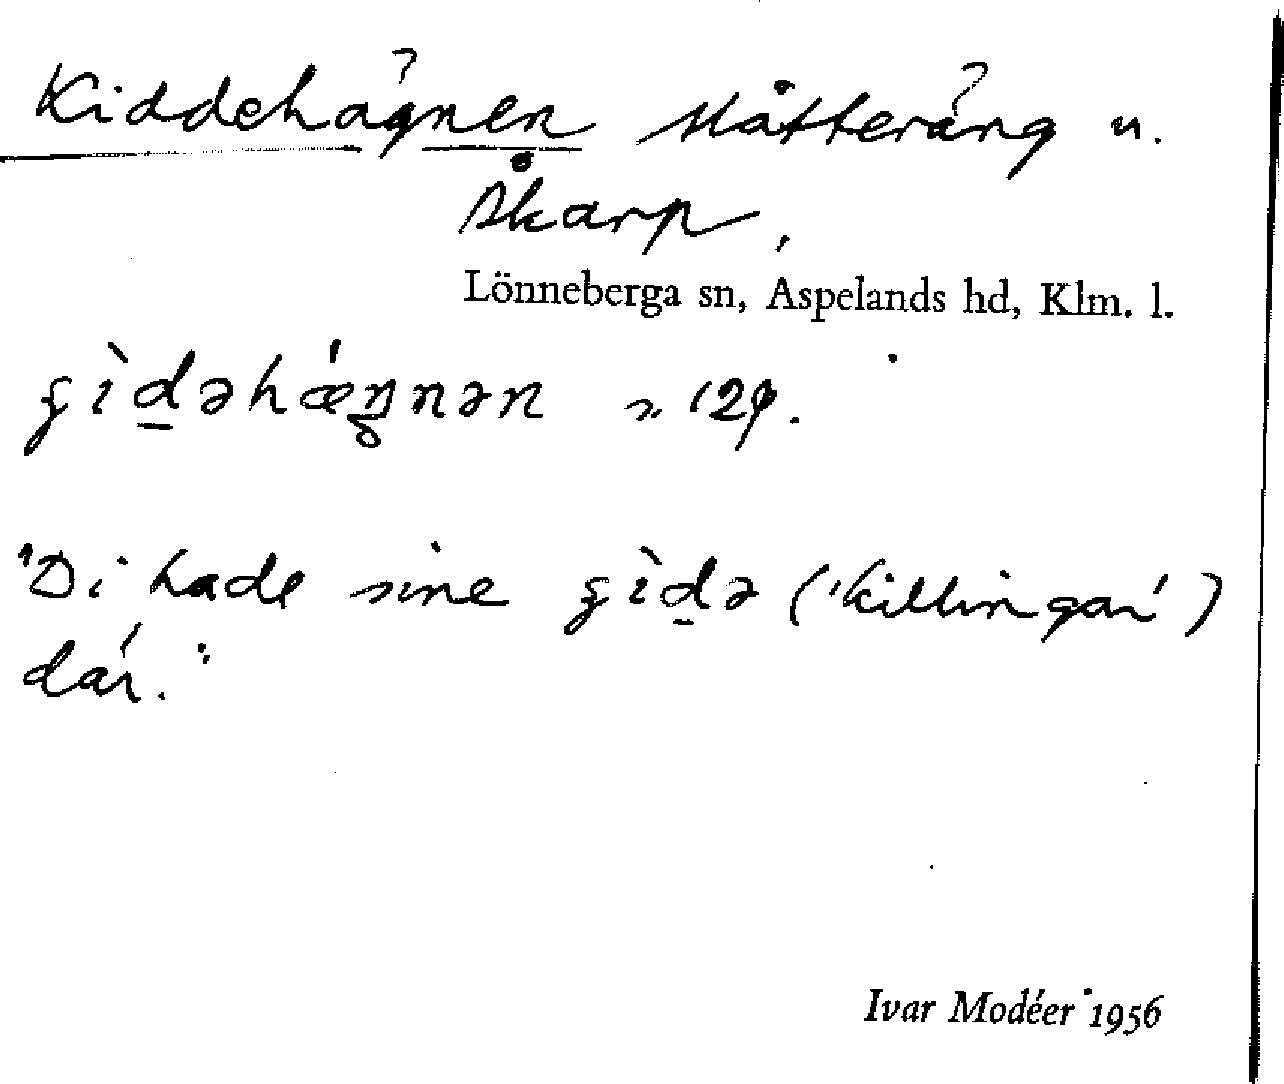 Kiddehägnen slåtteräng u.
Åkarp,
Lönneberga sn, Aspelands hd, Klm. l.
ʂìd̲əhǽŋ̥nən n 129.
"Di hade sine ʂìd̲ə ('killingar')
där."
Ivar Modéer 1956